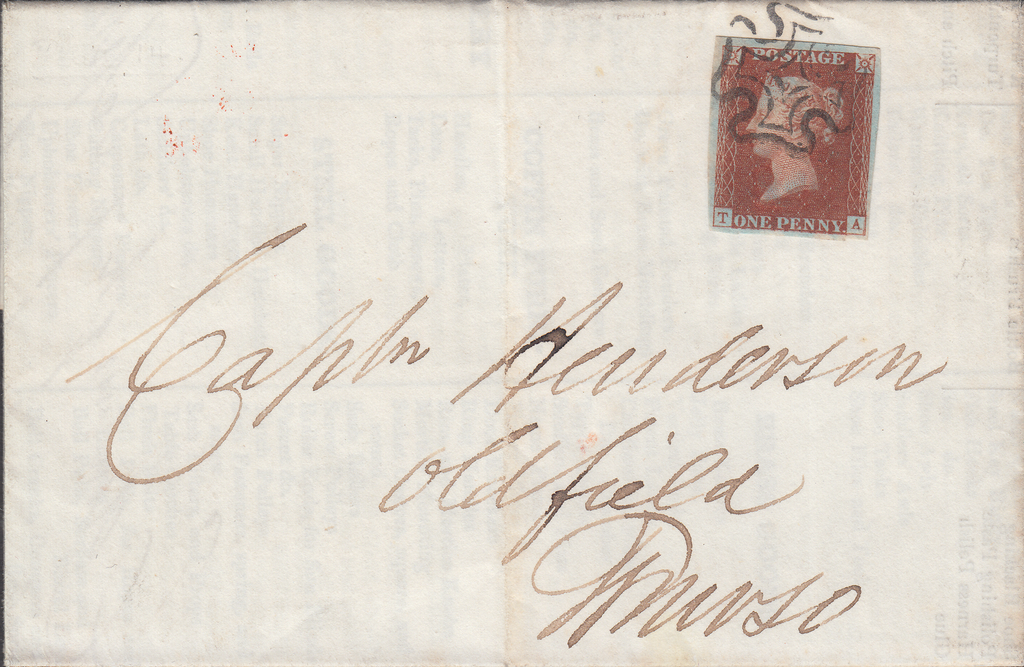 POSTAGE
T ONE PENNY. A
Captn Henderson
Oldfield
Thurso